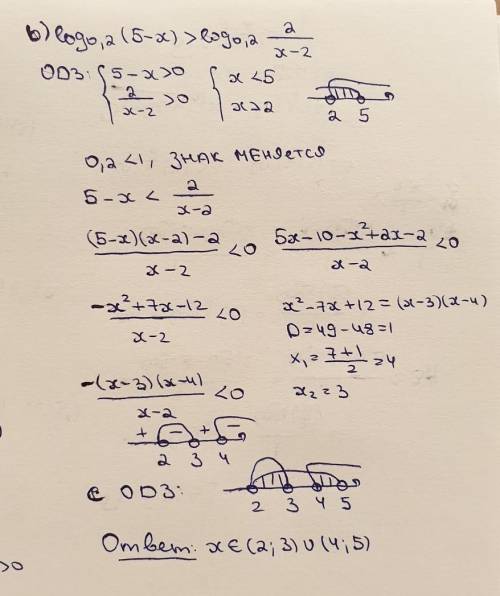 b) log₀,₂ (5-x) > log₀,₂ 2/(x-2)
ОДЗ: { 5-x>0 { x<5
2/(x-2) >0 x>2
2 5
0,2 <1, ЗНАК МЕНЯЕТСЯ
5-x < 2/(x-2)
((5-x)(x-2)-2)/(x-2) <0 (5x-10-x²+2x-2)/(x-2) <0
(-x²+7x-12)/(x-2) <0 x²-7x+12=(x-3)(x-4)
D=49-48=1
x₁=(7+1)/2=4
-(x-3)(x-4)/(x-2) <0 x₂=3
+ - + -
2 3 4
С ОДЗ:
2 3 4 5
Ответ: x∈(2;3)∪(4;5)
>0